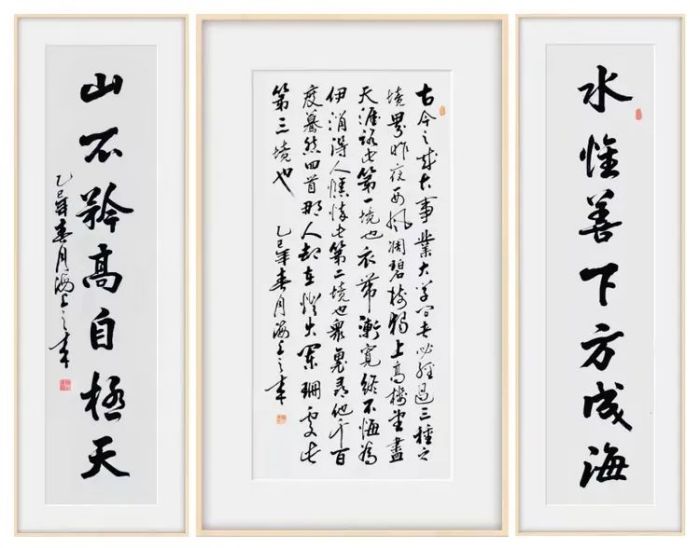 水惟善下方成海
古今之成大事業大学问者必经过三種之
境界昨夜西風凋碧樹獨上高樓望盡
天涯路此第一境也衣帶漸寬終不悔為
伊消得人憔悴此第二境也衆裏尋他千百
度驀然回首那人却在燈火闌珊處此
第三境也 乙巳年春月海上之
山不矜高自極天
乙巳年春月海上之